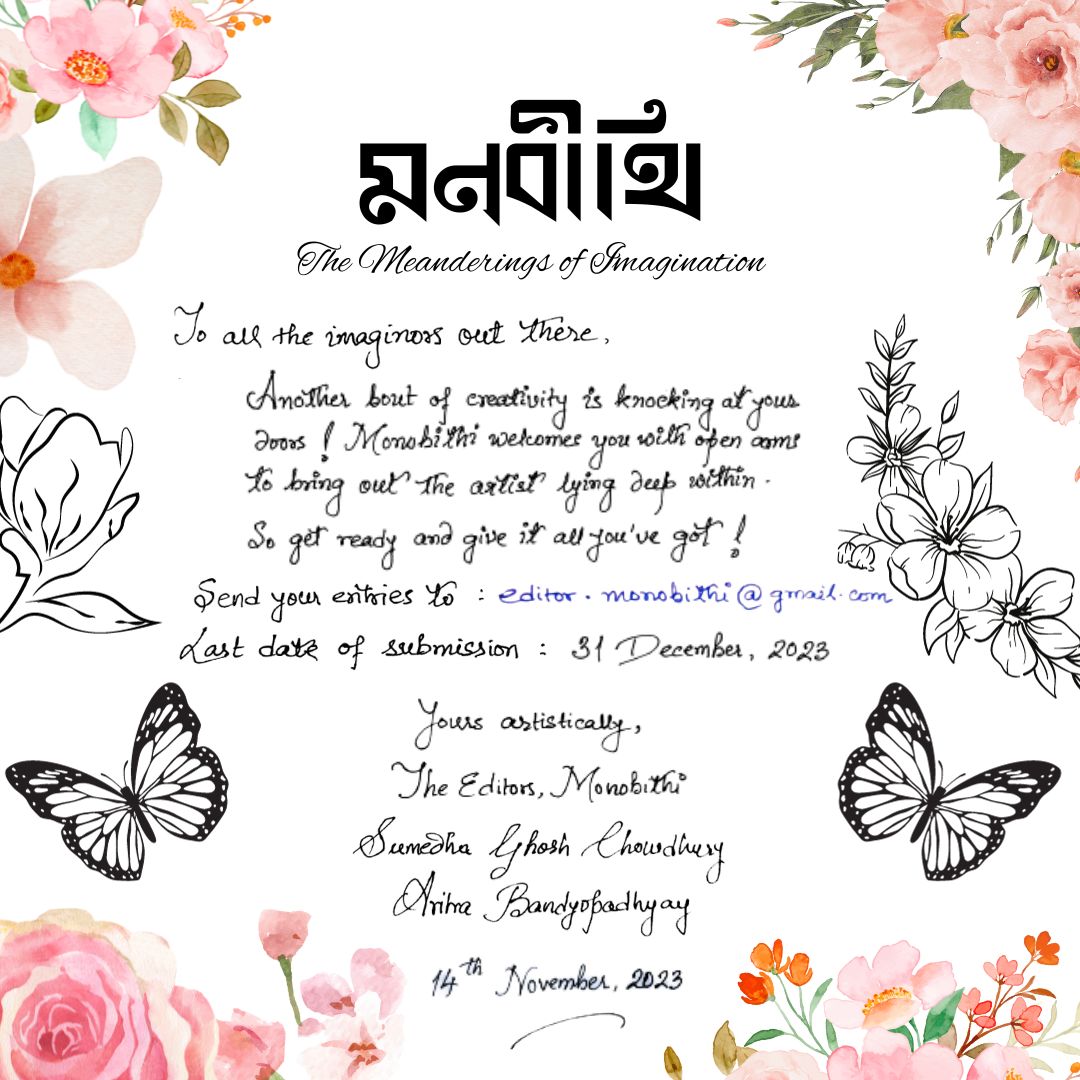 মনবীথি
The Meanderings of Imagination
To all the imaginors out there,
Another bout of creativity is knocking at your
doors! Monobithi welcomes you with open arms
to bring out the artist lying deep within.
So get ready and give it all you've got!
Send your entries to : editor.monobithi@gmail.com
Last date of submission : 31 December, 2023
Yours artistically,
The Editors, Monobithi
Sumedha Ghosh Chowdhury
Aritra Bandyopadhyay
14th November, 2023